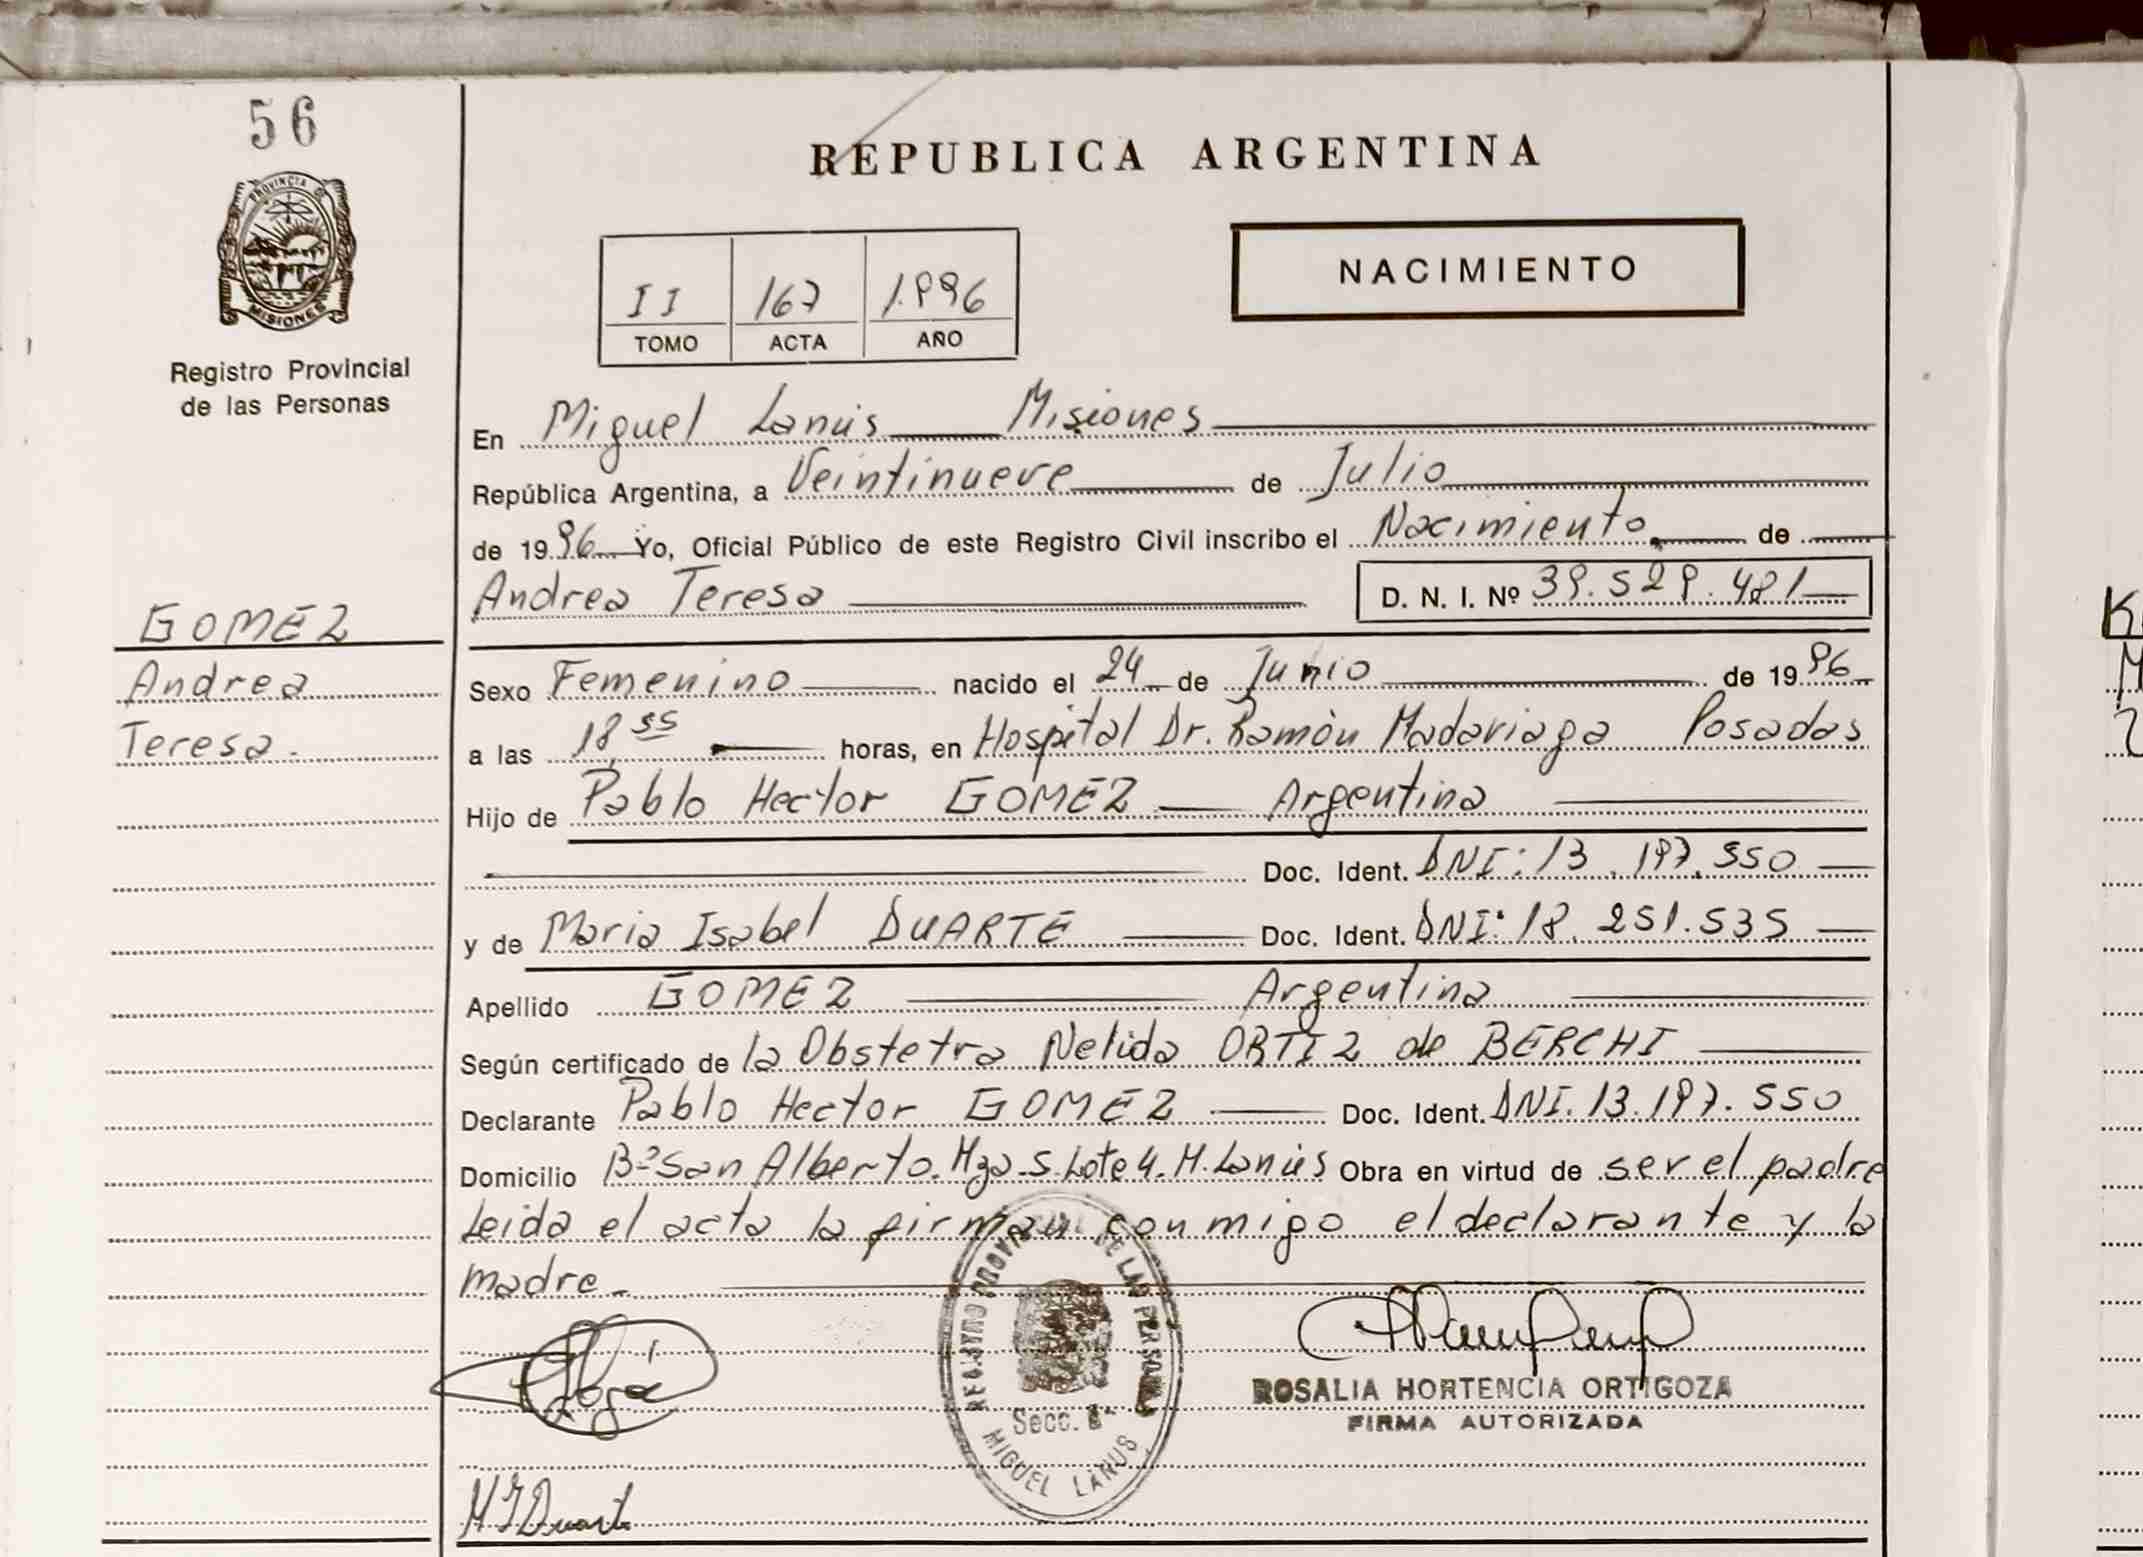 56
PROVINCIA DE
MISIONES
Registro Provincial
de las Personas
REPUBLICA ARGENTINA
II 167 1.996
TOMO ACTA AÑO
NACIMIENTO
En Miguel Lanús Misiones
República Argentina, a Veintinueve de Julio
de 1996 Yo, Oficial Público de este Registro Civil inscribo el Nacimiento de
Andrea Teresa D. N. I. Nº 39.529.481
GOMEZ
Andrea
Teresa.
Sexo Femenino nacido el 24 de Junio de 1996
a las 18 55 horas, en Hospital Dr. Ramòn Madariaga Posadas
Hijo de Pablo Hector GOMEZ Argentina
Doc. Ident. DNI: 13.197.550
y de Maria Isabel DUARTE Doc. Ident. DNI: 18.251.535
Apellido GOMEZ Argentina
Según certificado de la Obstetra Nelida ORTIZ de BERCHI
Declarante Pablo Hector GOMEZ Doc. Ident. DNI. 13.197.550
Domicilio Bº San Alberto. Mza. S. Lote 4. M. Lanús Obra en virtud de ser el padre
Leida el acta la firman conmigo el declarante y la
madre.
REGISTRO PROVINCIAL DE LAS PERSONAS
Secc.
MIGUEL LANUS
ROSALIA HORTENCIA ORTIGOZA
FIRMA AUTORIZADA
M I Duarte